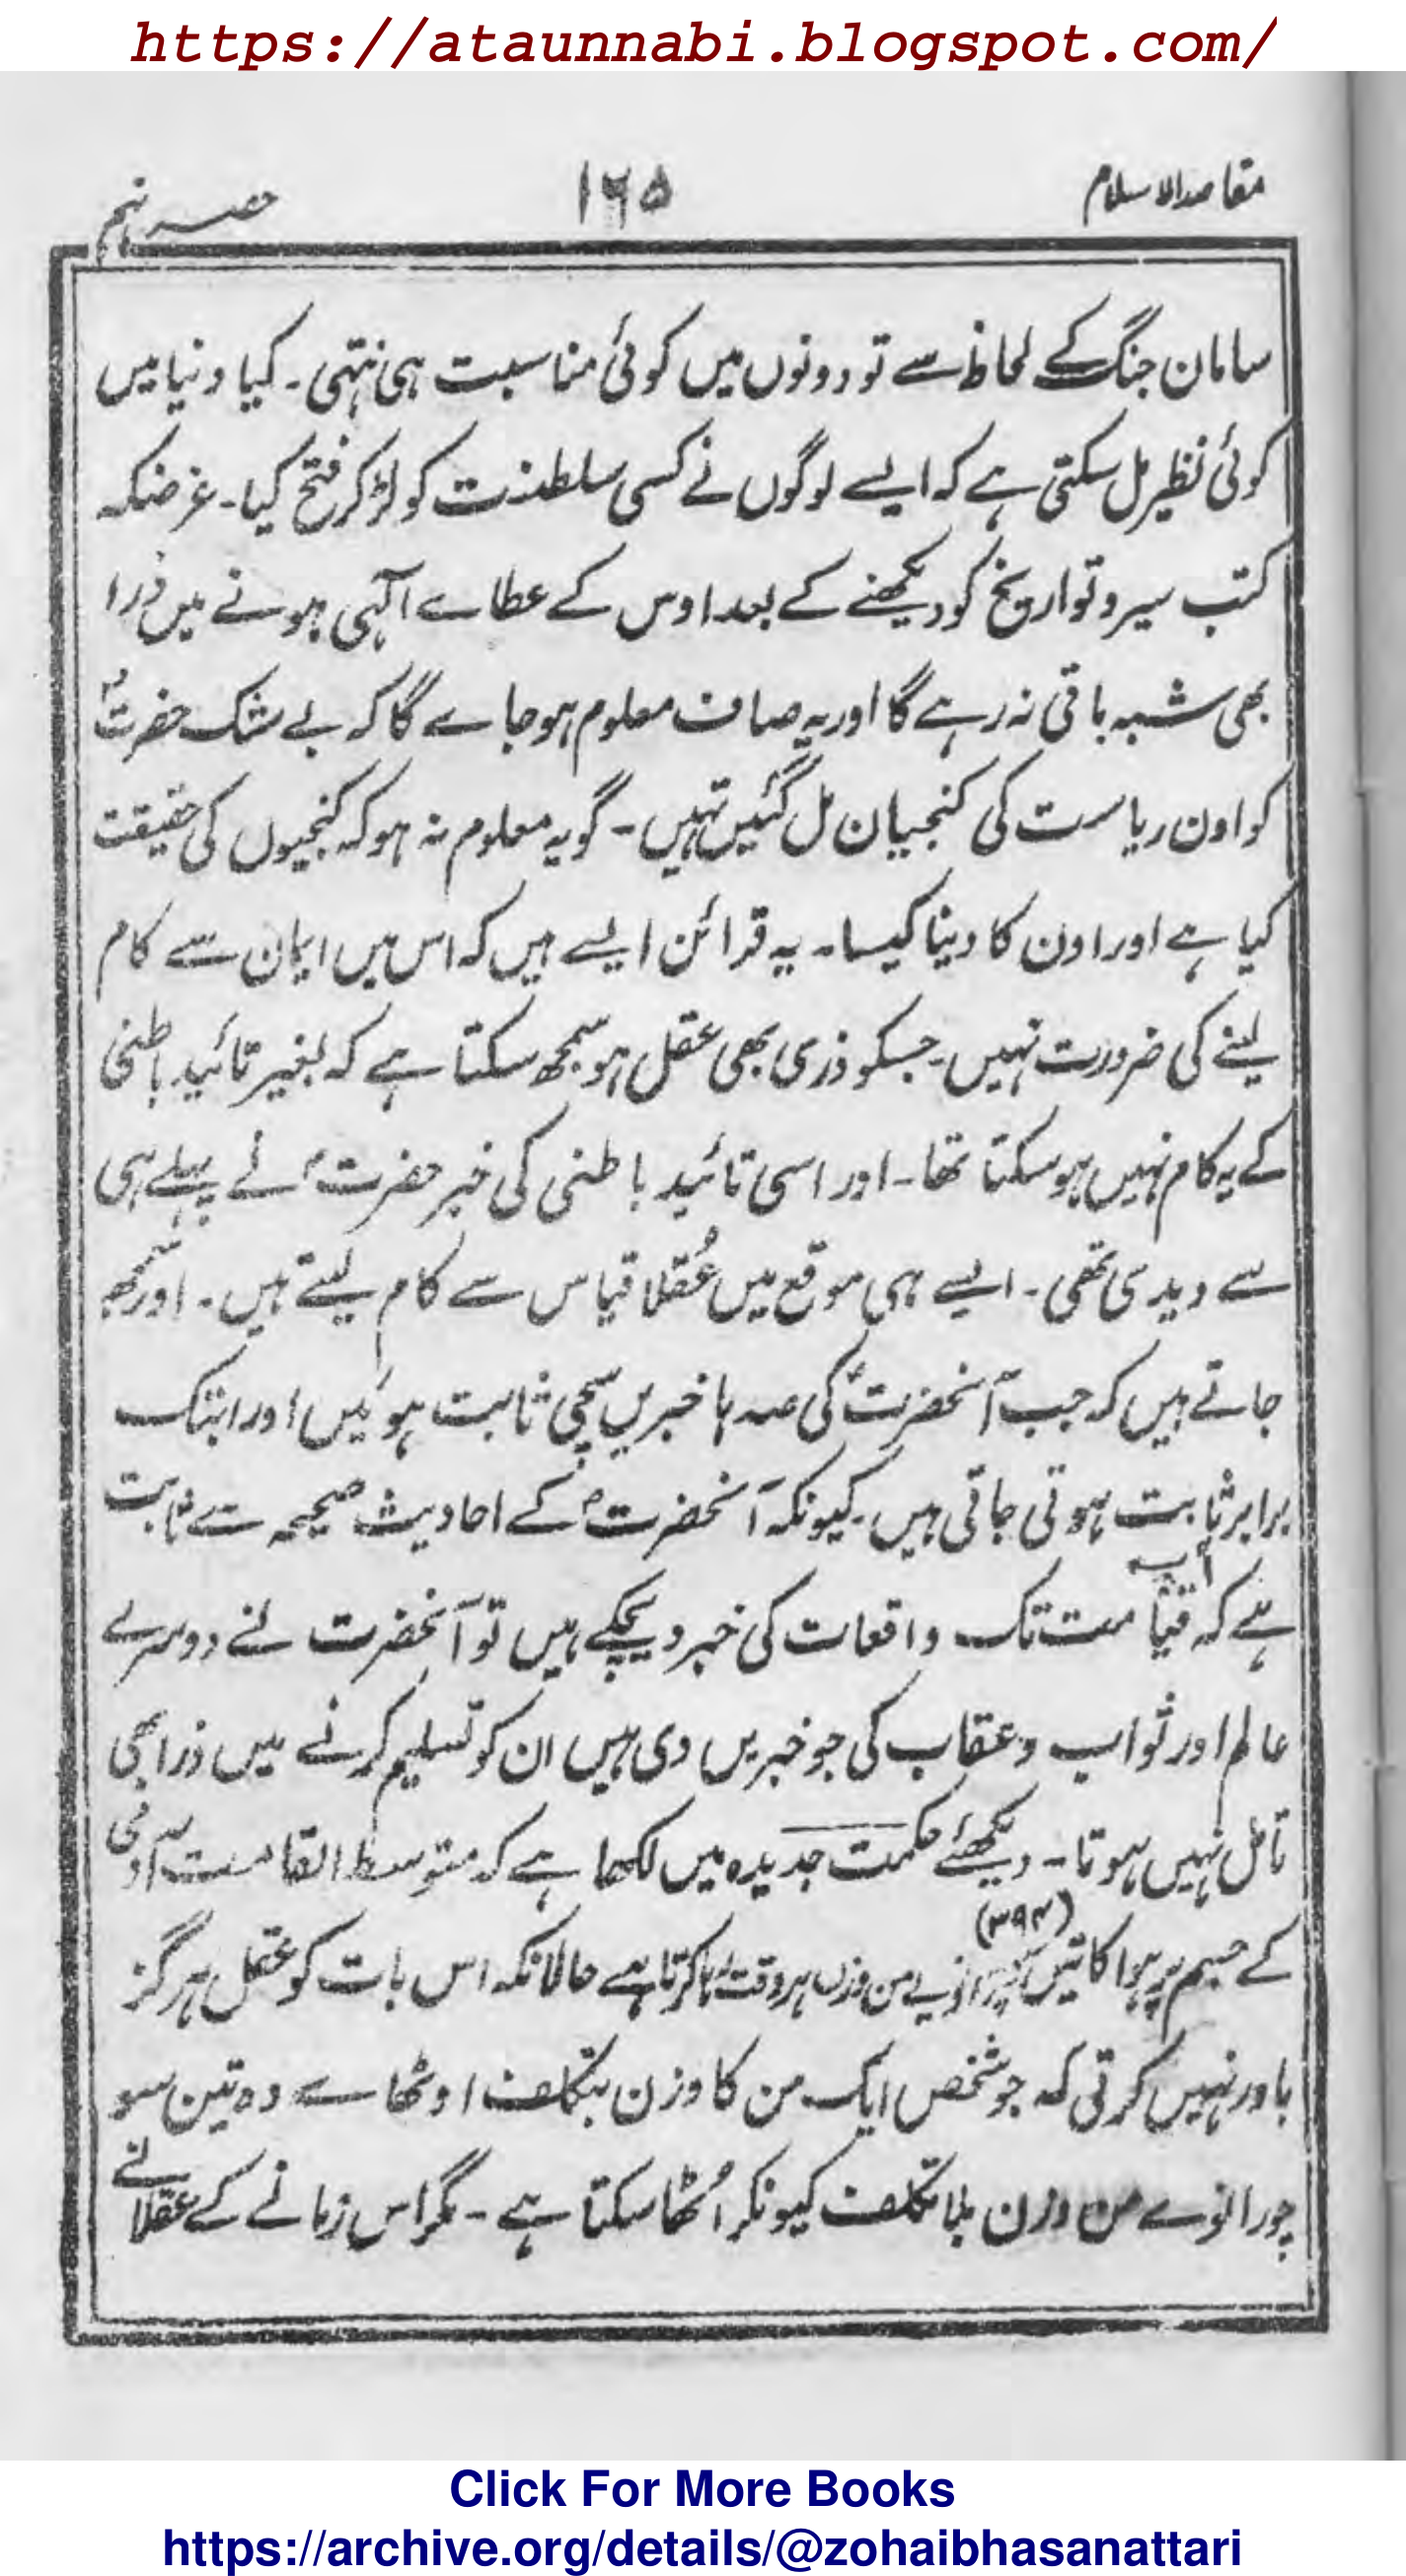 https://ataunnabi.blogspot.com/
مقاصد الاسلام
۱۶۵
حصہ نہم
سامان جنگ کے لحاظ سے تو دونوں میں کوئی مناسبت ہی نتھی ۔ کیا دنیا میں
کوئی نظیر مل سکتی ہے کہ ایسے لوگوں نے کسی سلطنت کو لڑ کر فتح کیا ۔ غرضکہ
کتب سیر و تواریخ کو دیکھنے کے بعد اوس کے عطاے آلہی ہونے میں ذرا
بھی شبہ باقی نہ رہے گا اور یہ صاف معلوم ہو جاے گا کہ بے شک حضرتؐ
کو اون ریاست کی کنجیان مل گئیں تہیں ۔ گو یہ معلوم نہ ہو کہ کنجیوں کی حقیقت
کیا ہے اور اون کا دینا کیسا ۔ یہ قرائن ایسے ہیں کہ اس میں ایمان سے کام
لینے کی ضرورت نہیں ۔ جسکو ذری بھی عقل ہو سمجھ سکتا ہے کہ بغیر تائید باطنی
کے یہ کام نہیں ہو سکتا تھا ۔ اور اسی تائید باطنی کی خبر حضرتؐ نے پہلے ہی
سے دیدی تھی ۔ ایسے ہی موقع میں عُقلا قیاس سے کام لیتے ہیں ۔ اور سمجھ
جاتے ہیں کہ جب آنحضرتؐ کی صدہا خبریں سچی ثابت ہوئیں اور ابتک
برابر ثابت ہوتی جاتی ہیں ۔ کیونکہ آنحضرتؐ کے احادیث صحیحہ سے ثابت
ہے کہ آپ قیامت تک واقعات کی خبر دیچکے ہیں تو آنحضرت نے دوسرے
عالم اور ثواب و عقاب کی جو خبریں دی ہیں ان کو تسلیم کرنے میں ذرا بھی
تامل نہیں ہوتا ۔ دیکھئے حکمت جدیدہ میں لکھا ہے کہ متوسط القامت آدمی
کے جسم پر ہوا کا تین (۳۹۴) من وزن ہر وقت رہا کرتا ہے حالانکہ اس بات کو عقل ہرگز
باور نہیں کرتی کہ جو شخص ایک من کا وزن بتکلف اوٹھاے وہ تین سو
چورانوے من وزن بلا تکلف کیونکر اُٹھا سکتا ہے ۔ مگر اس زمانے کے عقلا نے
Click For More Books
https://archive.org/details/@zohaibhasanattari